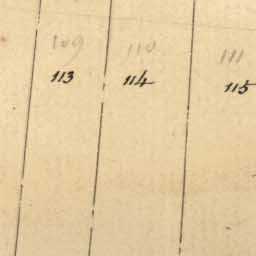 109 110 111
113 114 115